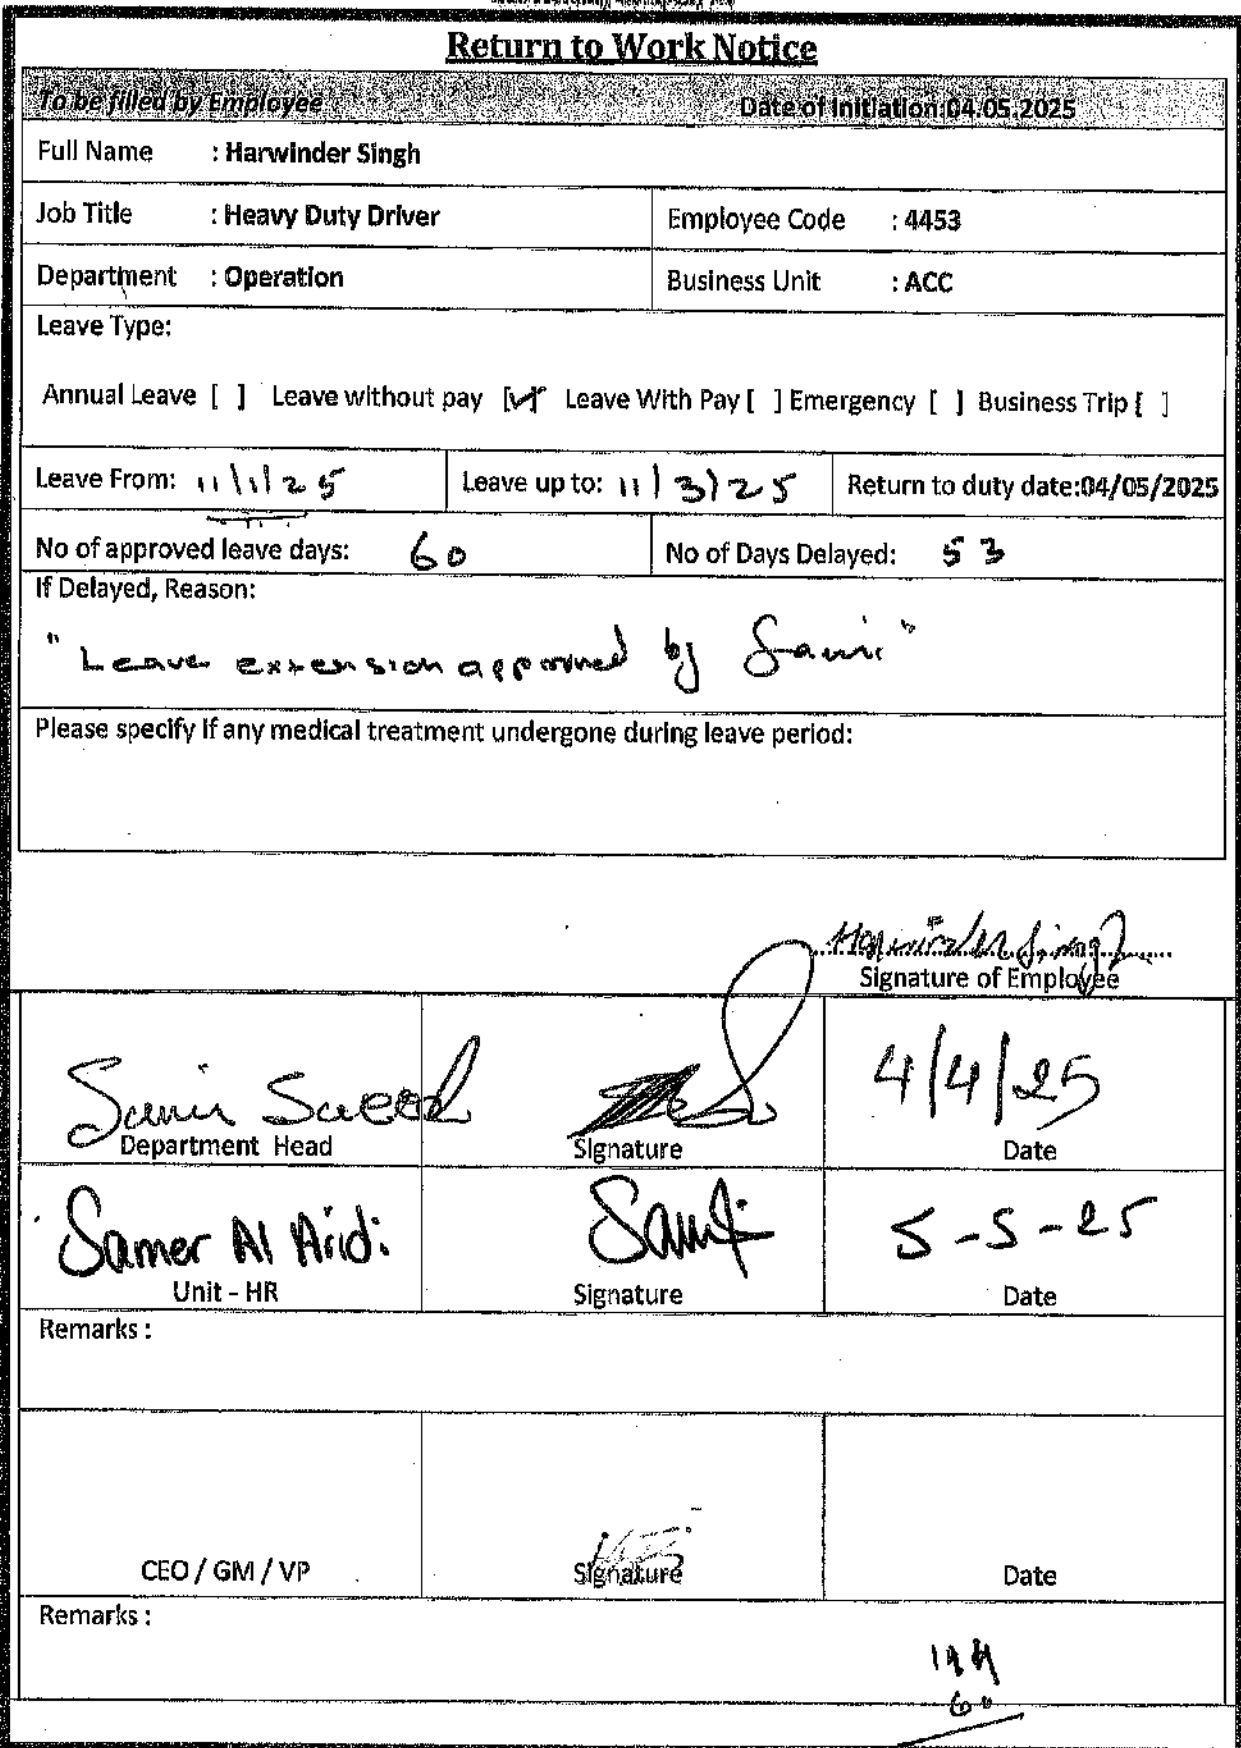 Return to Work Notice
To be filled by Employee Date of Initiation:04.05.2025
Full Name : Harwinder Singh
Job Title : Heavy Duty Driver Employee Code : 4453
Department : Operation Business Unit : ACC
Leave Type:
Annual Leave [ ] Leave without pay [✓] Leave With Pay [ ] Emergency [ ] Business Trip [ ]
Leave From: 11\1\25 Leave up to: 11/3/25 Return to duty date:04/05/2025
No of approved leave days: 60 No of Days Delayed: 53
If Delayed, Reason:
"Leave extension approved by Sami"
Please specify if any medical treatment undergone during leave period:
Harwinder Singh
Signature of Employee
Samir Saeed 4/4/25
Department Head Signature Date
Samer Al Aridi 5-5-25
Unit - HR Signature Date
Remarks :
CEO / GM / VP Signature Date
Remarks :
60